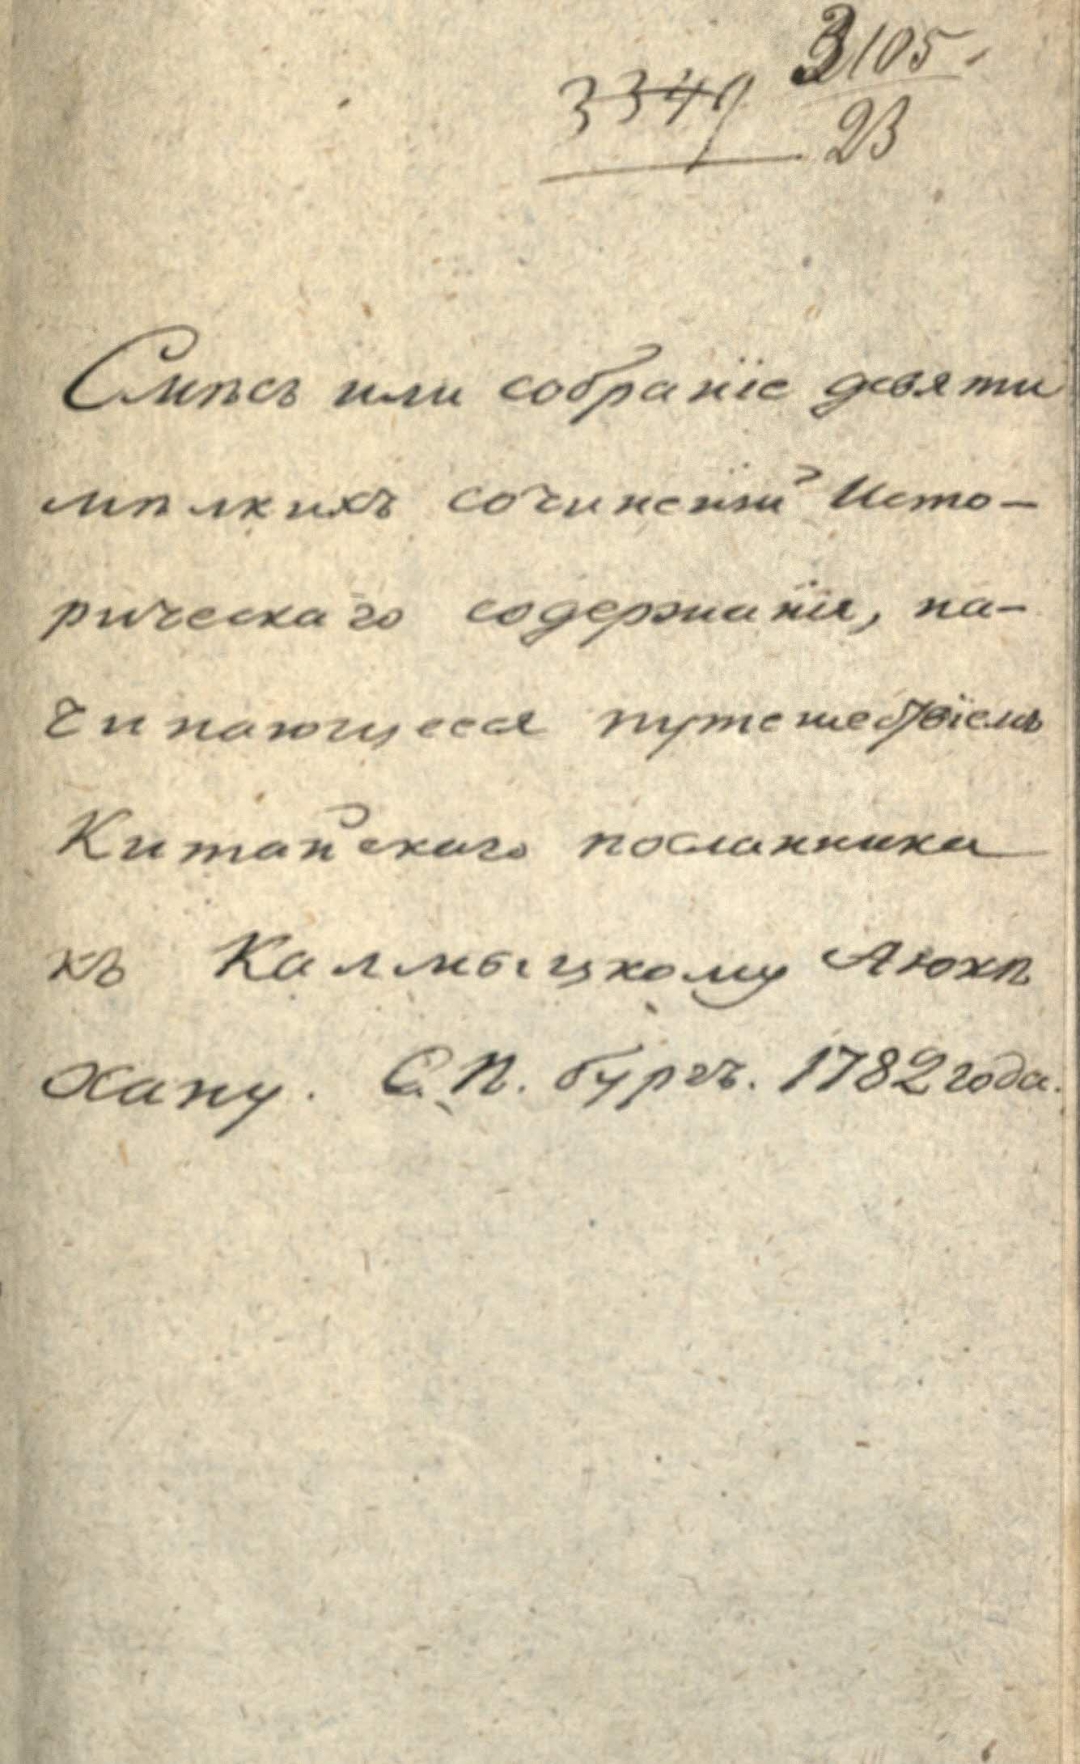 3105.
3349
23
Смѣсь или собраніе девяти
мѣлкихъ сочиненій Исто-
рическаго содержанія, на-
чинающееся путешествіемъ
Китайскаго посланника
къ Калмыцкому Аюкѣ
Хану. С. П. бургъ. 1782 года.